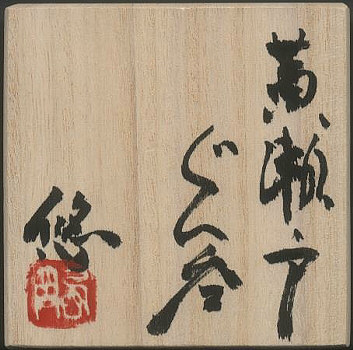 黄瀬戸
ぐい呑
悠